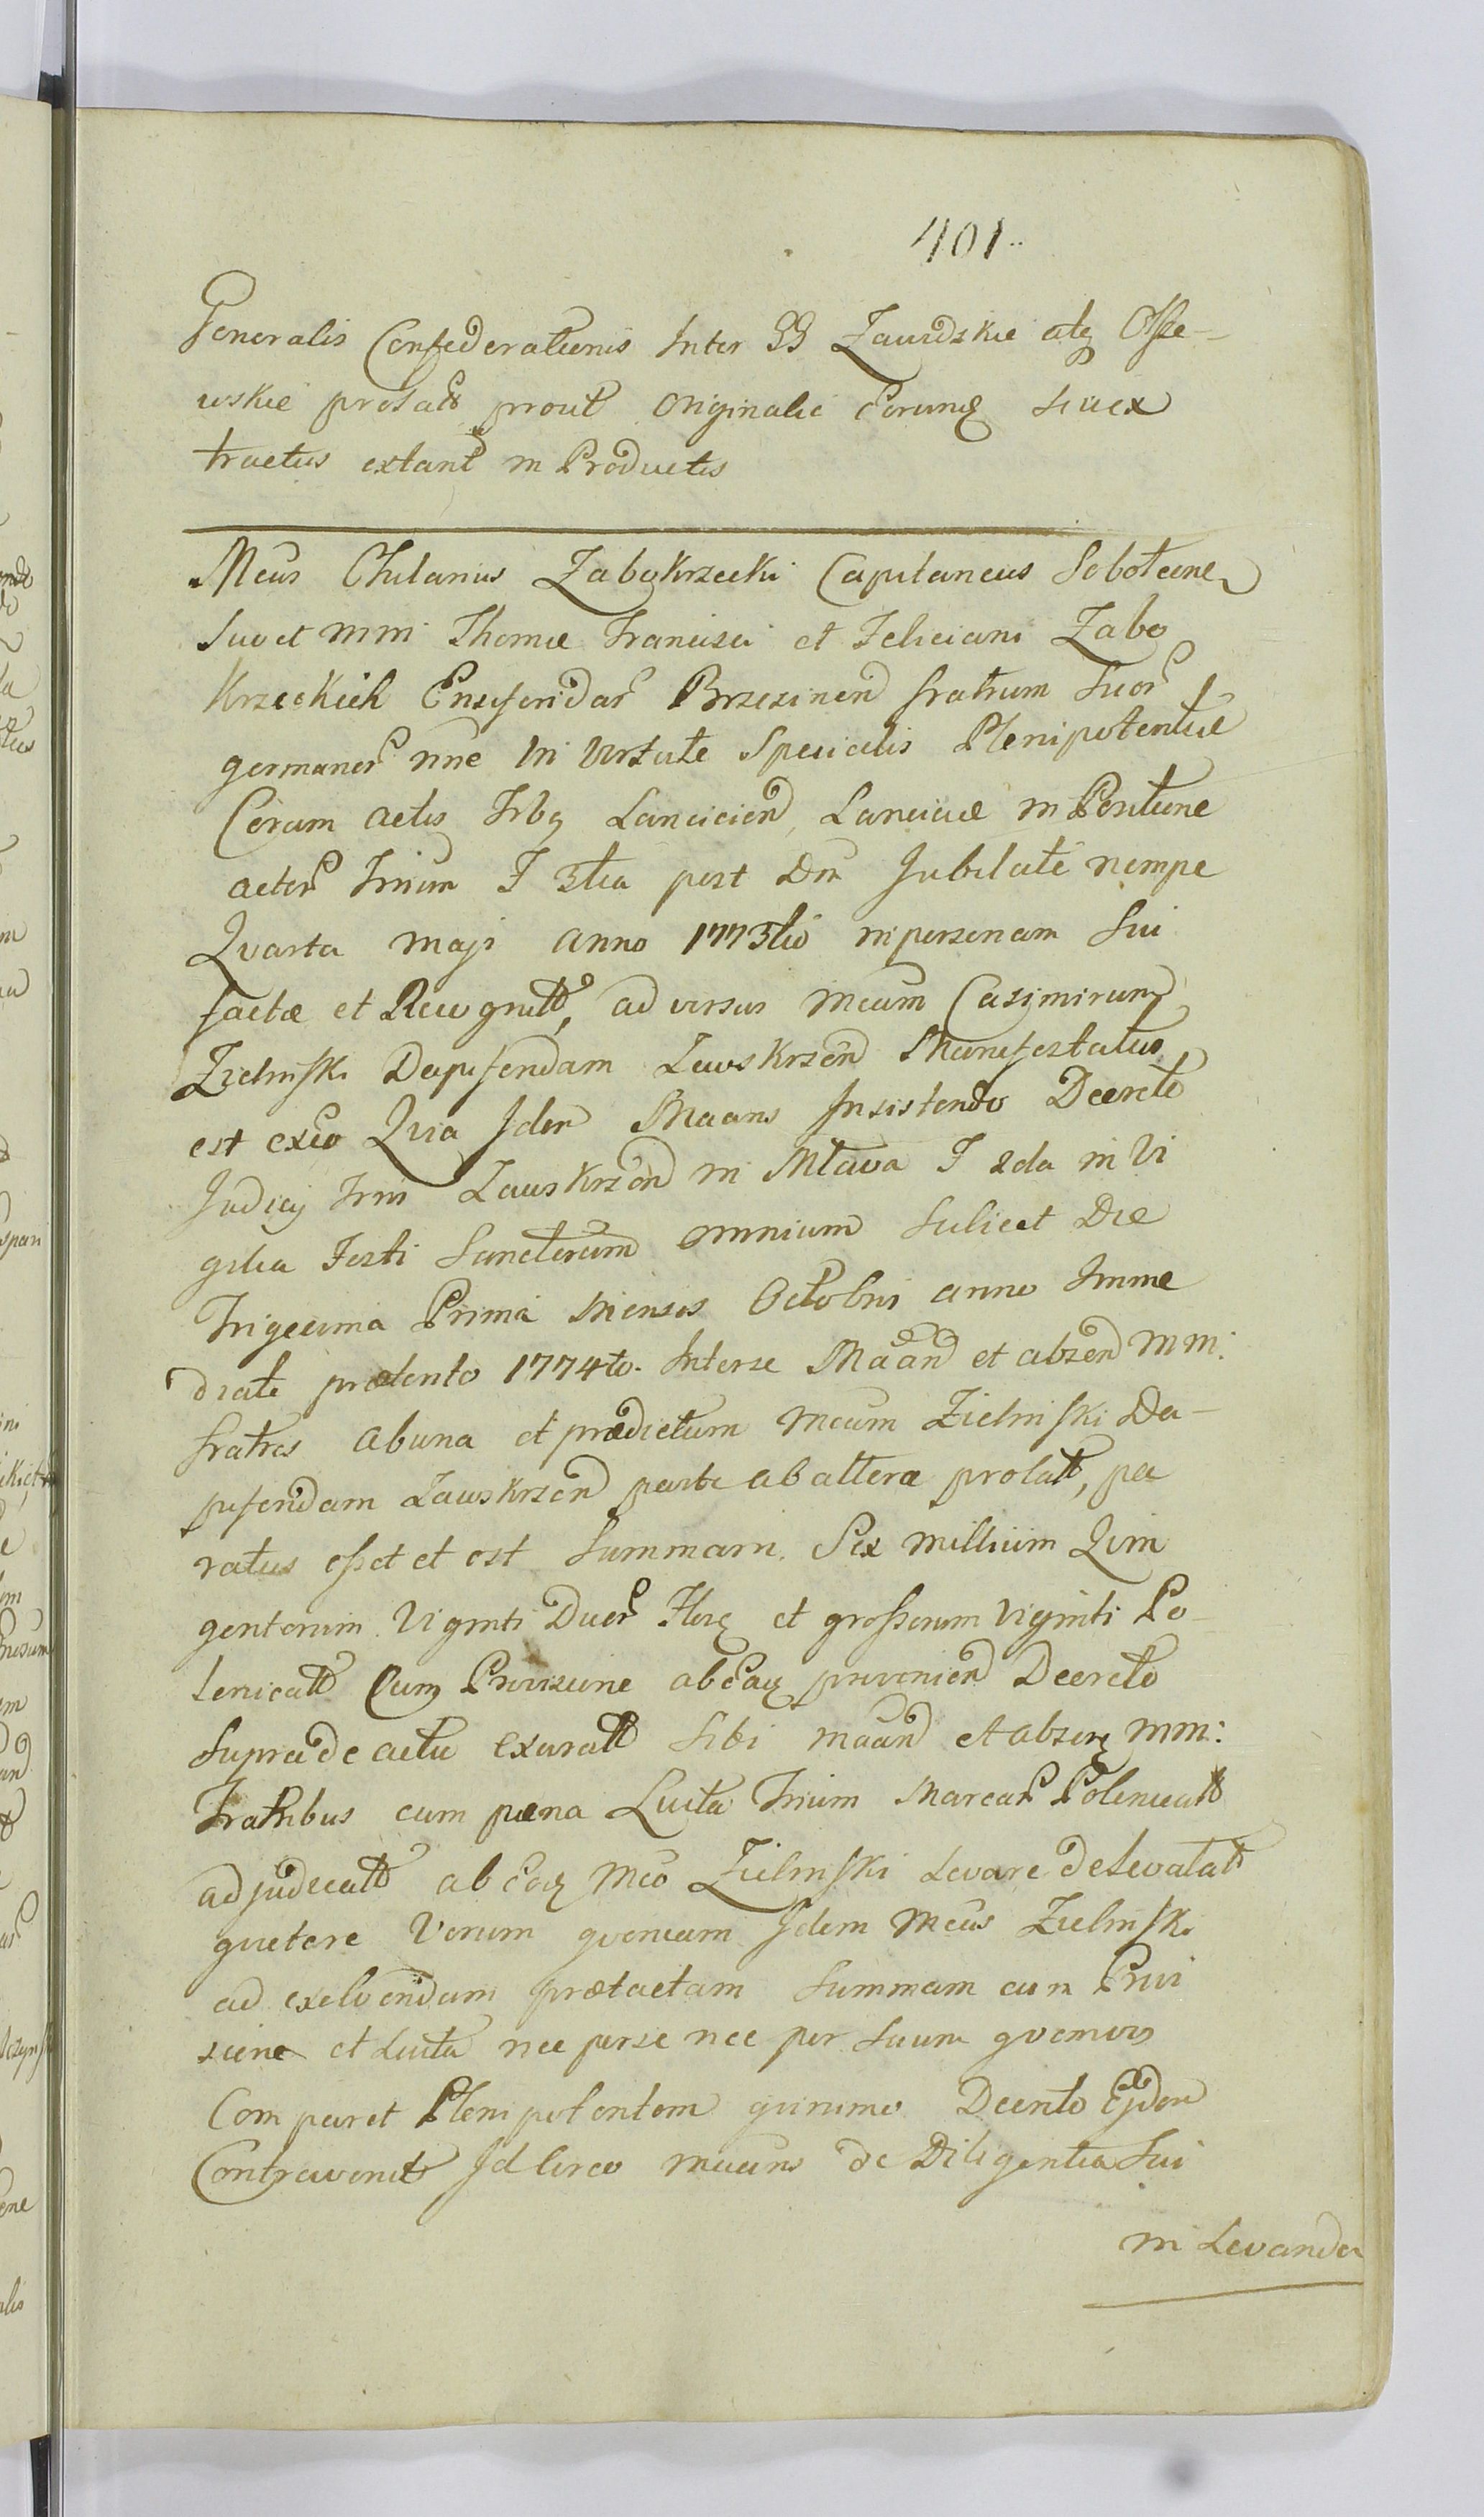 401.
Generalis Confederationis Inter GG Zawidzkie atq Osse-
wskie prolat prout Originalie Eorumq sive ex
tractus extant in Productis
Mcus Chilarius Zabokrzecki Capitaneus Sobotecine
suo et mm Thomæ Francisci et Feliciani Zabo
Krzeckich Ensiferidar Brzezinen fratrum suor
germanor nne vi virtute Specialis Plenipotentiæ
Coram actis Trbq Lancicien Lanciciæ in Positione
actor Trium F 3tia post Dm Jubilate nempe
Quarta maji anno 1773tio in personam sui
factæ et Recognitt, adversus Mcum Casimirum
Zielinski Dapiferidam Zawskrzen Manifestatus
est exeo Quia Idem Maans Insistendo Decreto
Judicij Trris Zawskrzen in Mława F 2da in Vi
gilia Festi Sanctorum omnium scilicet Die
Trigecima Prima Mensis Octobris anno Imme
diate prætento 1774to. Inter se Maan et absen MM:
fratres ab una et prædictum Mcum Zielinski Da-
piferidam Zawskrzen parte ab altera prolatt, pa
ratus esset et est Summam Sex millium Quin
gentorum Viginti Duor Florq et grossorum viginti Po-
lonicatt Cum Provisione ab eaq provenien Decreto
supra de actu exaratt sibi maan et absenq mm:
Fratribus cum pæna Luita Trium Marcar Polonicatt
adjudicatt ab eoq Mco Zielinski Levare de levatatt
quietare Verum quoniam Idem Mcus Zielinski
ad exolvendum prætactam Summam cum Provi
sione et Luita nec per se nec per suum quemvis
Comparet Plenipotentem quinimo Decreto Ejdem
Contravenit Idcirco maans de Diligentia sui
in Levanda